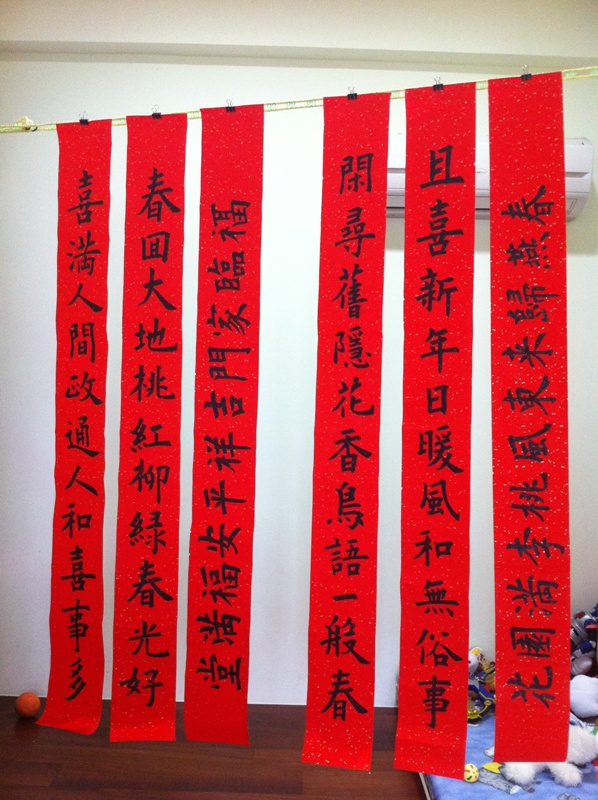 春燕歸来東風桃李滿園花
且喜新年日暖風和無俗事
閑尋舊隱花香鳥語一般春
福臨家門吉祥平安福滿堂
春回大地桃紅柳綠春光好
喜滿人間政通人和喜事多